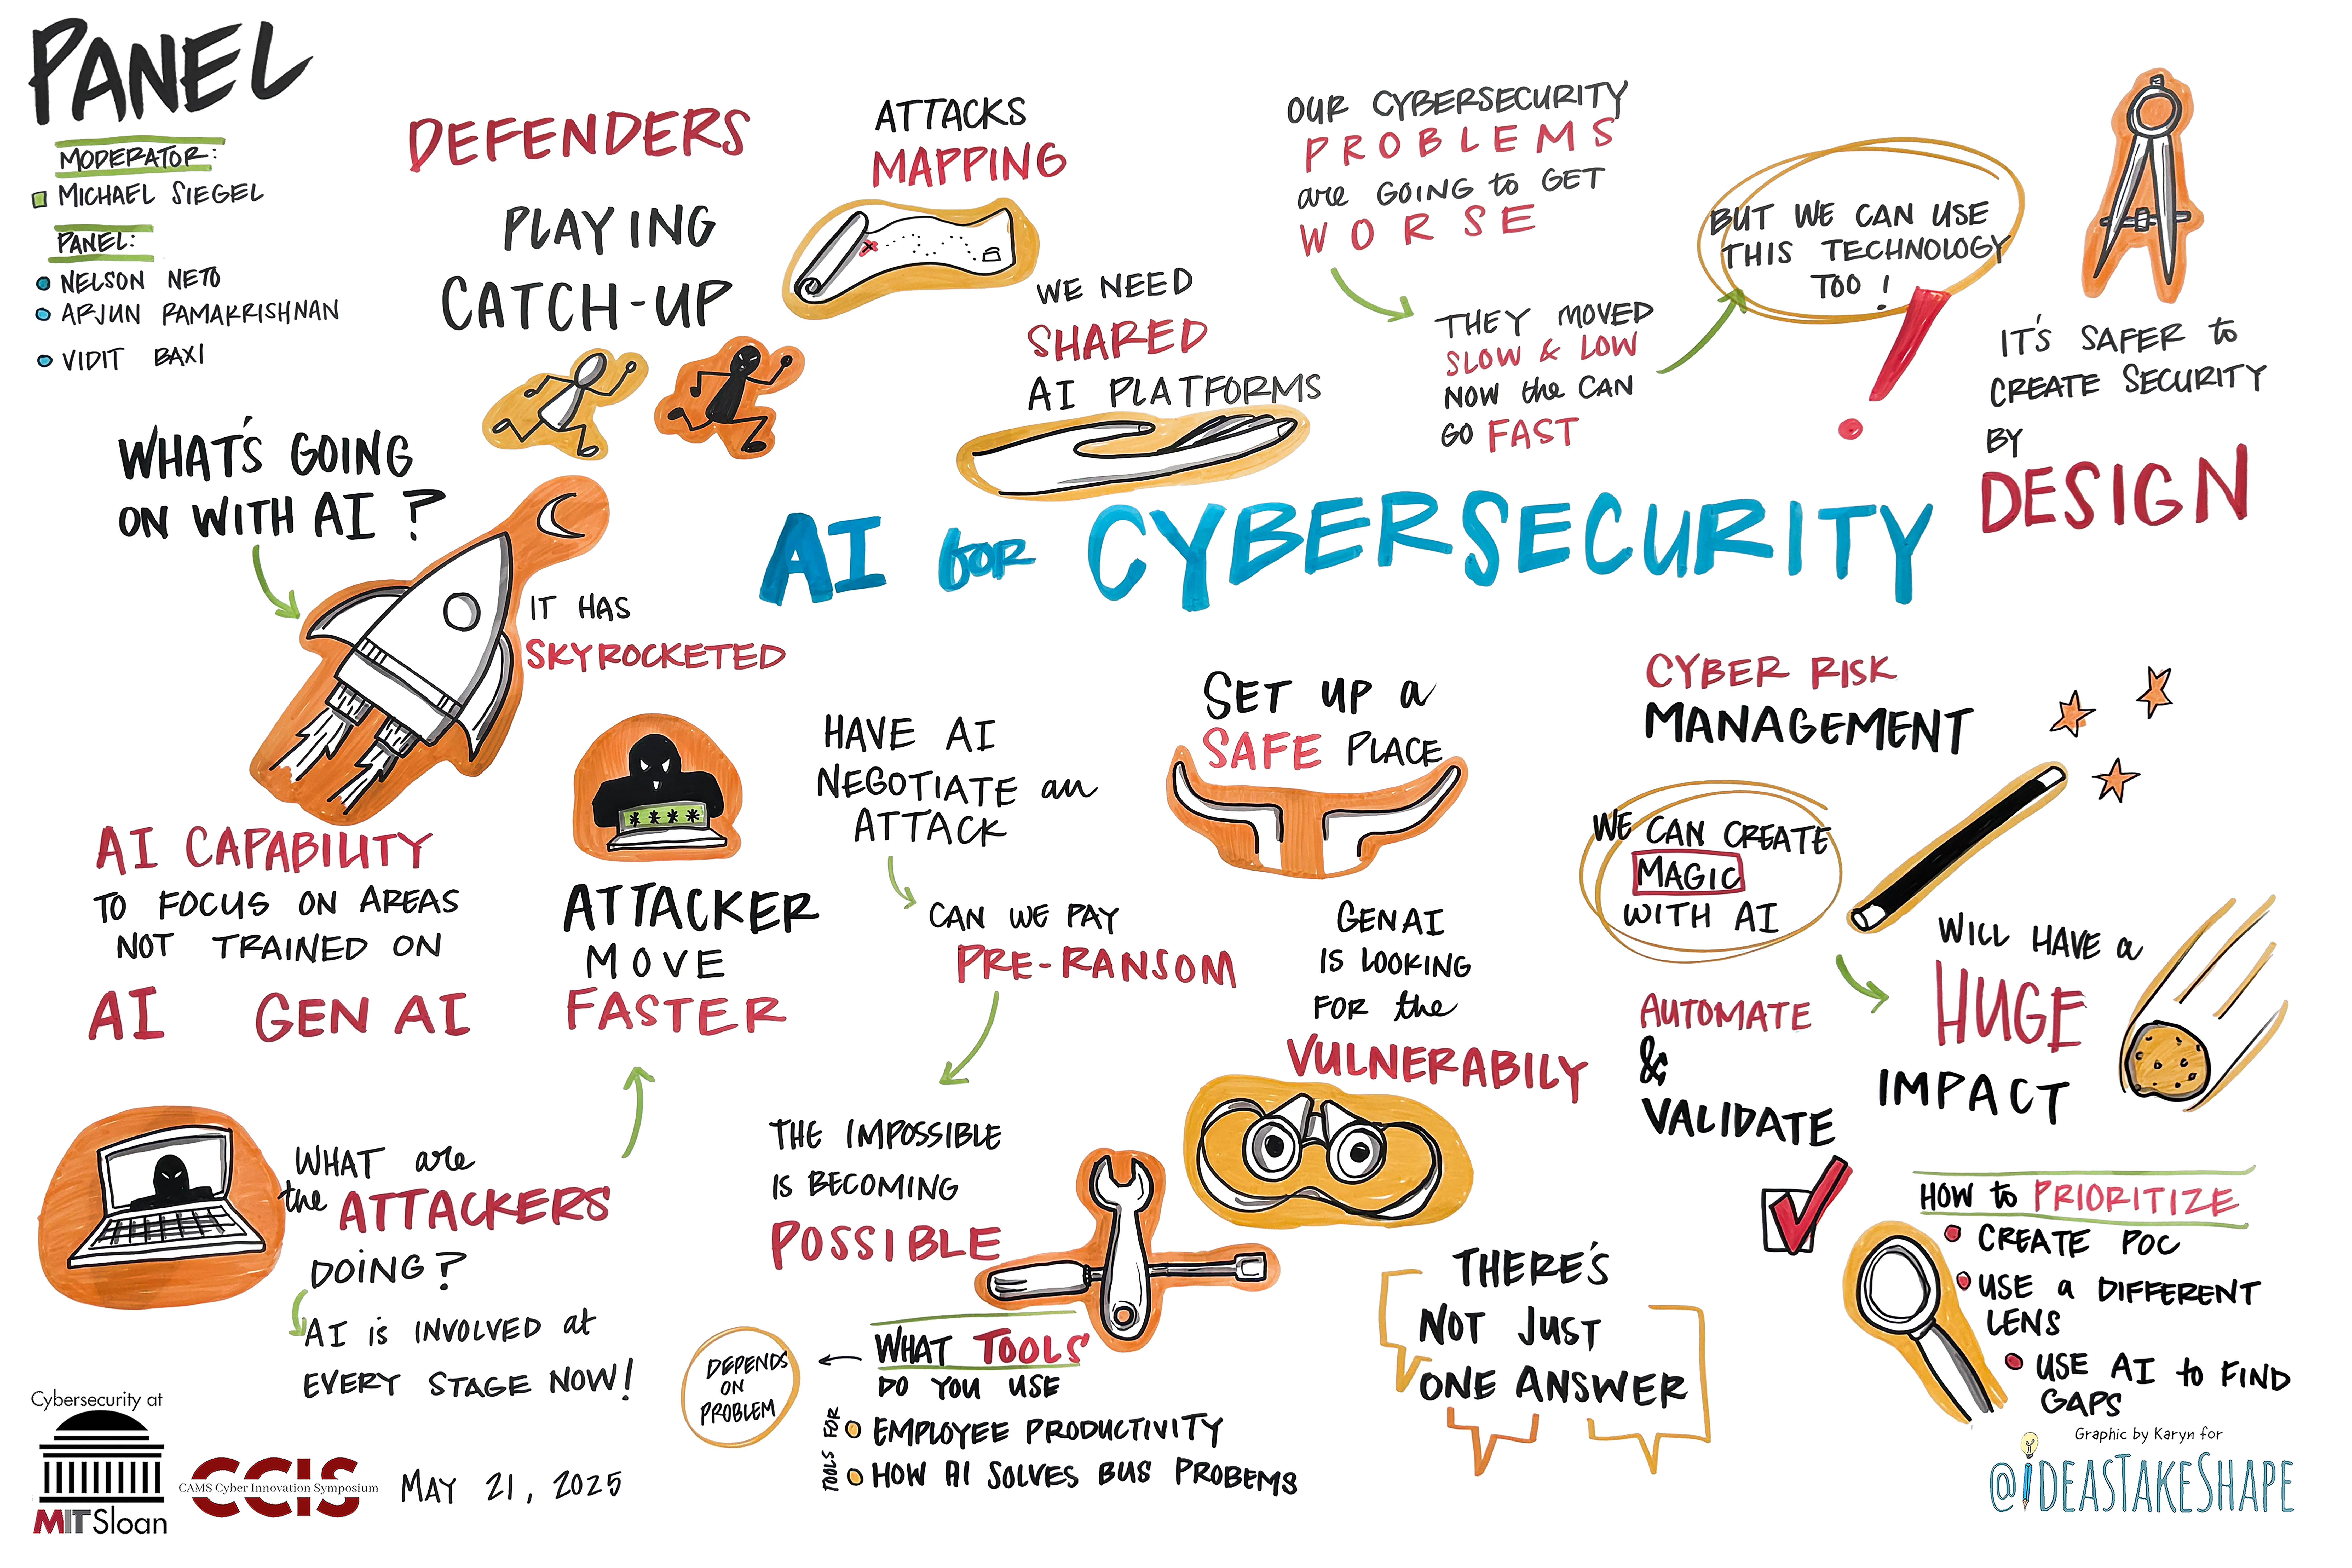 PANEL
MODERATOR:
MICHAEL SIEGEL
PANEL:
NELSON NETO
ARJUN RAMAKRISHNAN
VIDIT BAXI
DEFENDERS
PLAYING
CATCH-UP
ATTACKS
MAPPING
WE NEED
SHARED
AI PLATFORMS
OUR CYBERSECURITY
PROBLEMS
are GOING to GET
WORSE
THEY MOVED
SLOW & LOW
NOW the CAN
GO FAST
BUT WE CAN USE
THIS TECHNOLOGY
TOO!
IT'S SAFER to
CREATE SECURITY
BY
DESIGN
WHAT'S GOING
ON WITH AI?
IT HAS
SKYROCKETED
AI for CYBERSECURITY
AI CAPABILITY
TO FOCUS ON AREAS
NOT TRAINED ON
AI GEN AI
****
ATTACKER
MOVE
FASTER
WHAT are
the ATTACKERS
DOING?
AI is INVOLVED at
EVERY STAGE NOW!
HAVE AI
NEGOTIATE an
ATTACK
CAN WE PAY
PRE-RANSOM
THE IMPOSSIBLE
IS BECOMING
POSSIBLE
WHAT TOOLS
DO YOU USE
DEPENDS
ON
PROBLEM
TOOLS FOR
EMPLOYEE PRODUCTIVITY
HOW AI SOLVES BUS PROBEMS
SET UP a
SAFE PLACE
GEN AI
IS LOOKING
FOR the
VULNERABILY
THERE'S
NOT JUST
ONE ANSWER
CYBER RISK
MANAGEMENT
WE CAN CREATE
MAGIC
WITH AI
WILL HAVE a
HUGE
IMPACT
AUTOMATE
&
VALIDATE
HOW to PRIORITIZE
CREATE POC
USE a DIFFERENT
LENS
USE AI to FIND
GAPS
Cybersecurity at
MIT Sloan
CCIS
CAMS Cyber Innovation Symposium
MAY 21, 2025
Graphic by Karyn for
@iDEASTAKESHAPE